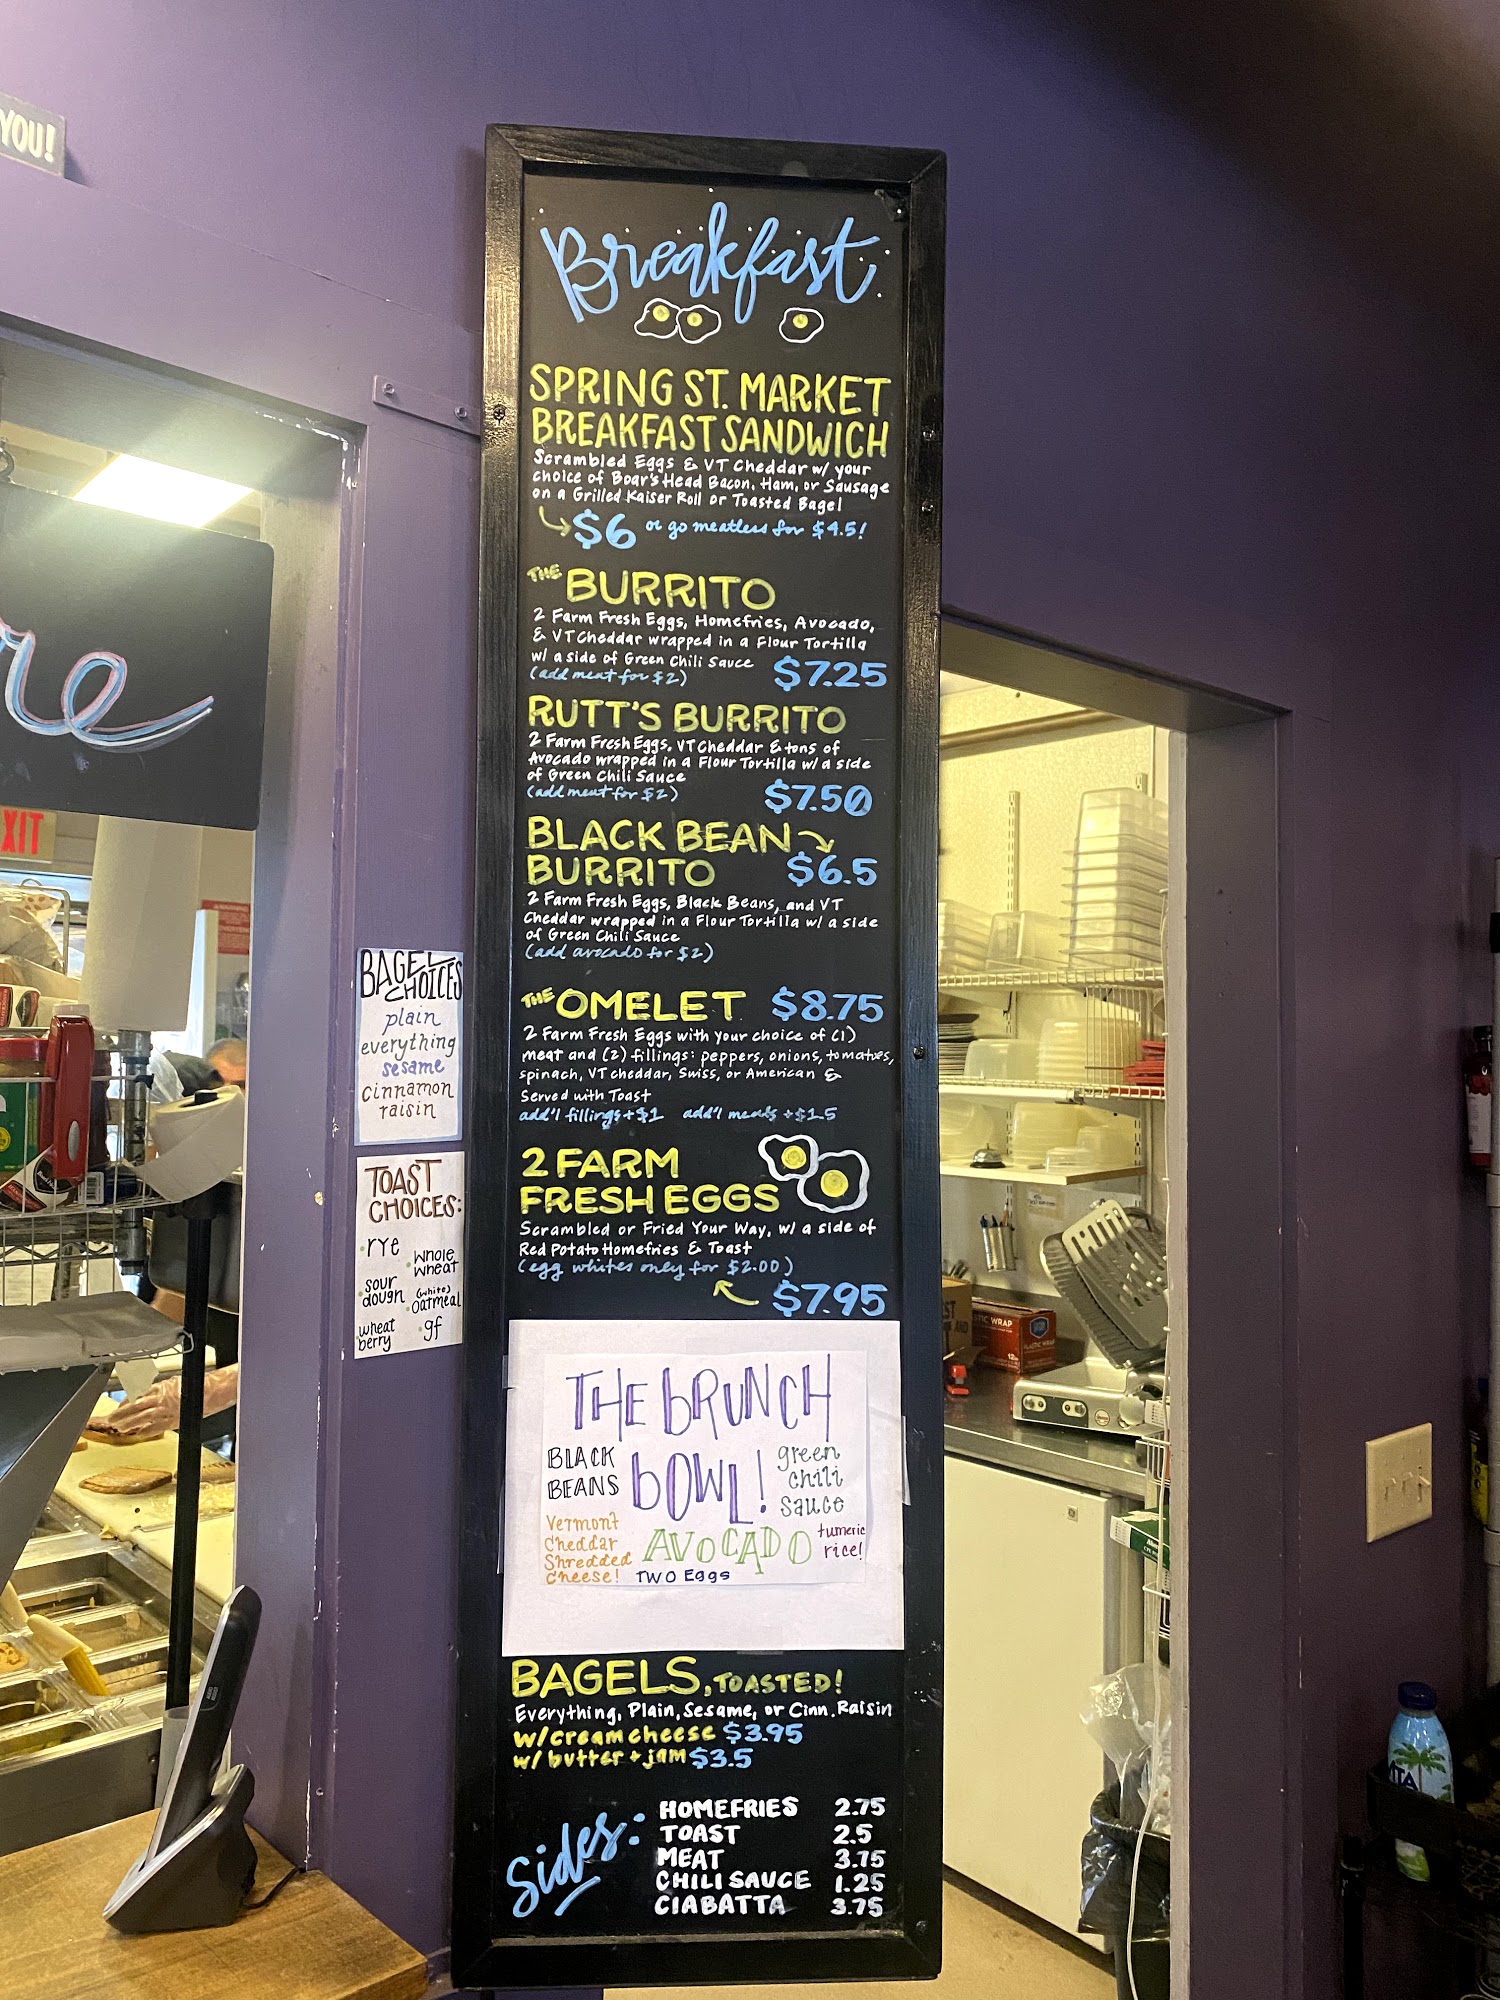 YOU!
re
XIT
Breakfast
SPRING ST. MARKET
BREAKFAST SANDWICH
Scrambled Eggs & VT Cheddar w/ your
choice of Boar's Head Bacon, Ham, or Sausage
on a Grilled Kaiser Roll or Toasted Bagel
$6 or go meatless for $4.5!
THE BURRITO
2 Farm Fresh Eggs, Homefries, Avocado,
& VT Cheddar wrapped in a Flour Tortilla
w/ a side of Green Chili Sauce $7.25
(add meat for $2)
RUTT'S BURRITO
2 Farm Fresh Eggs, VT Cheddar & tons of
Avocado wrapped in a Flour Tortilla w/ a side
of Green Chili Sauce
(add meat for $2) $7.50
BLACK BEAN
BURRITO $6.5
2 Farm Fresh Eggs, Black Beans, and VT
Cheddar wrapped in a Flour Tortilla w/ a side
of Green Chili Sauce
(add avocado for $2)
THE OMELET $8.75
2 Farm Fresh Eggs with your choice of (1)
meat and (2) fillings: peppers, onions, tomatoes,
spinach, VT cheddar, Swiss, or American &
Served with Toast
add'l fillings +$1 add'l meats +$1.5
2 FARM
FRESH EGGS
Scrambled or Fried Your Way, w/ a side of
Red Potato Homefries & Toast
(egg whites only for $2.00)
$7.95
THE bRUNCH
bOWL!
BLACK
BEANS
green
chili
sauce
Vermont
Cheddar
Shredded
Cheese!
AVOCADO
tumeric
rice!
TWO Eggs
BAGELS, TOASTED!
Everything, Plain, Sesame, or Cinn. Raisin
w/ cream cheese $3.95
w/ butter + jam $3.5
Sides:
HOMEFRIES 2.75
TOAST 2.5
MEAT 3.75
CHILI SAUCE 1.25
CIABATTA 3.75
BAGEL
CHOICES
plain
everything
sesame
cinnamon
raisin
TOAST
CHOICES:
rye
whole
wheat
sour
dough
(white)
oatmeal
wheat
berry
gf
PLASTIC WRAP